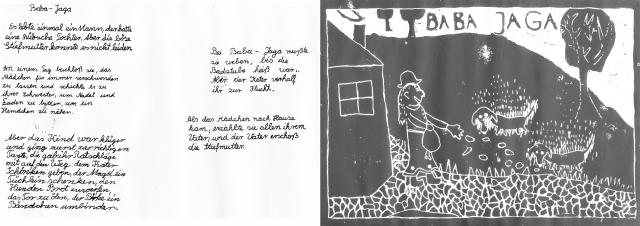 Baba-Jaga
Es lebte einmal ein Mann, der hatte
eine hübsche Tochter. Aber die böse
Stiefmutter konnte es nicht leiden
An einem Tag beschloß sie, das
Mädchen für immer verschwinden
zu lassen und schickte es zu
ihrer Schwester, um Nadel und
Faden zu bitten, um ein
Hemdchen zu nähen.
Aber das Kind war klüger
und ging zuerst zur richtigen
Tante, die gab ihr Ratschläge
mit auf den Weg: dem Kater
Schinken geben, der Magd ein
Tüchlein schenken, den
Hunden Brot zuwerfen,
das Tor zu ölen, der Birke ein
Bändchen umbinden.
Bei Baba-Jaga mußte
sie weben, bis die
Badstube heiß war..
Aber der Kater verhalf
ihr zur Flucht.
Als das Mädchen nach Hause
kam, erzählte sie allen ihrem
Vater, und der Vater erschoß
die Stiefmutter.
BABA JAGA